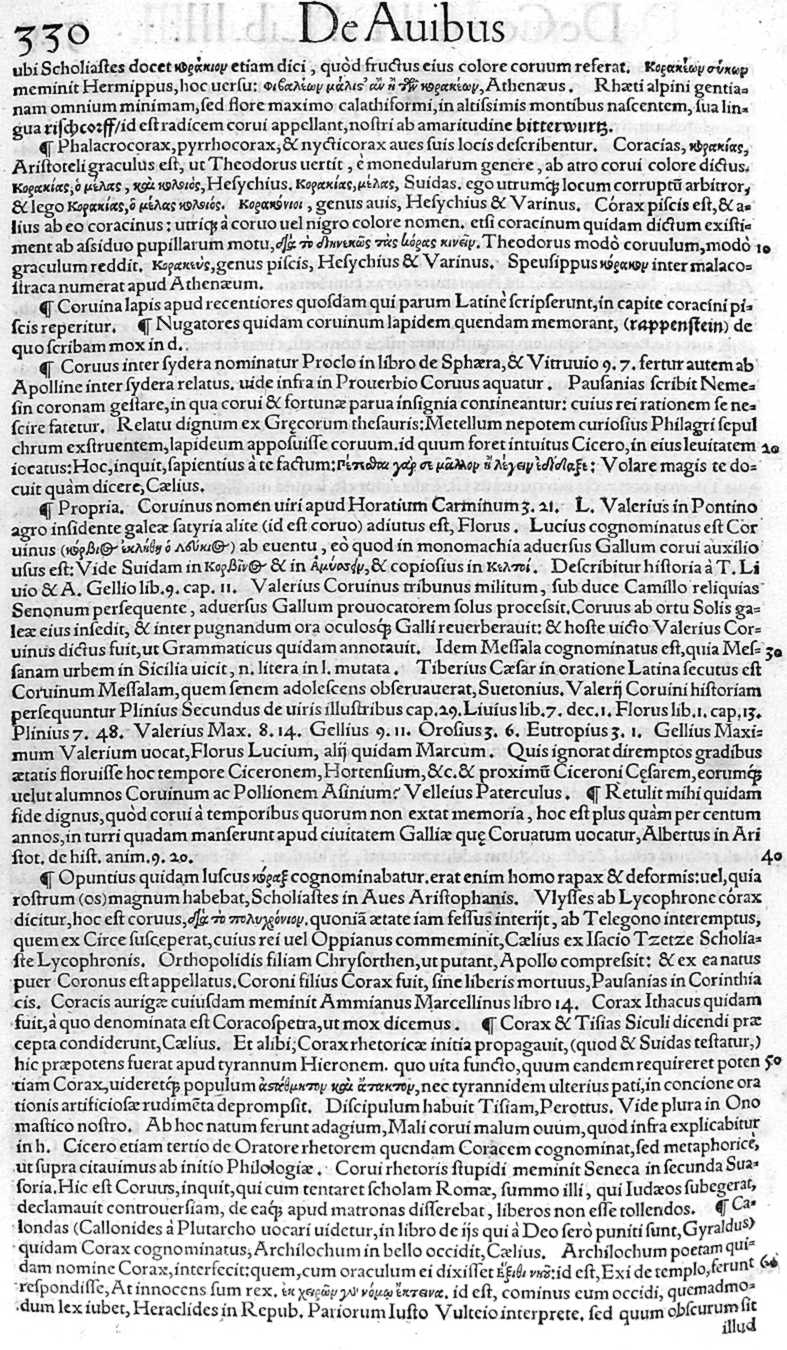 330 De Auibus
ubi Scholiastes docet κοράκιον etiam dici, quòd fructus eius colore coruum referat. Κορακέων σύκων
meminit Hermippus, hoc uersu: Athenæus. Rhæti alpini gentia-
nam omnium minimam, sed flore maximo calathiformi, in altissimis montibus nascentem, sua lin-
gua /id est radicem corui appellant, nostri ab amaritudine bitterwurtz.
¶ Phalacrocorax, pyrrhocorax, & nycticorax aues suis locis describentur. Coracias, κορακίας,
Aristoteli graculus est, ut Theodorus uertit, è monedularum genere, ab atro corui colore dictus.
Κορακίας, ὁ μέλας, καὶ κολοιός, Hesychius. Κορακίας, μέλας, Suidas. ego utrumq; locum corruptũ arbitror,
& lego Κορακίας, ὁ μέλας κολοιός. Κορακόνιοι, genus auis, Hesychius & Varinus. Córax piscis est, & a-
lius ab eo coracinus: utriq; à coruo uel nigro colore nomen. etsi coracinum quidam dictum existi-
ment ab assiduo pupillarum motu, διὰ τὸ διηνεκῶς τὰς κόρας κινεῖν. Theodorus modò coruulum, modò 10
graculum reddit. Κορακεύς, genus piscis, Hesychius & Varinus. Speusippus κόρακον inter malaco-
straca numerat apud Athenæum.
¶ Coruina lapis apud recentiores quosdam qui parum Latinè scripserunt, in capite coracini pi-
scis reperitur. ¶ Nugatores quidam coruinum lapidem quendam memorant, (rappenstein) de
quo scribam mox in d.
¶ Coruus inter sydera nominatur Proclo in libro de Sphæra, & Vitruuio 9. 7. fertur autem ab
Apolline inter sydera relatus. uide infra in Prouerbio Coruus aquatur. Pausanias scribit Neme-
sin coronam gestare, in qua corui & fortunæ parua insignia contineantur: cuius rei rationem se ne-
scire fatetur. Relatu dignum ex Gręcorum thesauris: Metellum nepotem curiosius Philagri sepul
chrum exstruentem, lapideum apposuisse coruum. id quum foret intuitus Cicero, in eius leuitatem 20
iocatus: Hoc, inquit, sapientius à te factum: πέτεσθαι γάρ σε μᾶλλον ἢ λέγειν ἐδίδαξε: Volare magis te do-
cuit quàm dicere, Cælius.
¶ Propria. Coruinus nomen uiri apud Horatium Carminum 3. 21. L. Valerius in Pontino
agro insidente galeæ satyria alite (id est coruo) adiutus est, Florus. Lucius cognominatus est Cor
uinus (κορβῖνος ἐκλήθη ὁ Λούκιος) ab euentu, eò quod in monomachia aduersus Gallum corui auxilio
usus est: Vide Suidam in Κορβῖνος & in & copiosius in Κελτοί. Describitur historia à T. Li
uio & A. Gellio lib. 9. cap. 11. Valerius Coruinus tribunus militum, sub duce Camillo reliquias
Senonum persequente, aduersus Gallum prouocatorem solus processit. Coruus ab ortu Solis ga-
leæ eius insedit, & inter pugnandum ora oculosq; Galli reuerberauit: & hoste uicto Valerius Cor-
uinus dictus fuit, ut Grammaticus quidam annotauit. Idem Messala cognominatus est, quia Mes- 30
sanam urbem in Sicilia uicit, n. litera in l. mutata. Tiberius Cæsar in oratione Latina secutus est
Coruinum Messalam, quem senem adolescens obseruauerat, Suetonius. Valerij Coruini historiam
persequuntur Plinius Secundus de uiris illustribus cap. 29. Liuius lib. 7. dec. 1. Florus lib. 1. cap. 13.
Plinius 7. 48. Valerius Max. 8. 14. Gellius 9. 11. Orosius 3. 6. Eutropius 3. 1. Gellius Maxi-
mum Valerium uocat, Florus Lucium, alij quidam Marcum. Quis ignorat diremptos gradibus
ætatis floruisse hoc tempore Ciceronem, Hortensium, &c. & proximũ Ciceroni Cęsarem, eorumq;
uelut alumnos Coruinum ac Pollionem Asinium? Velleius Paterculus. ¶ Retulit mihi quidam
fide dignus, quòd corui à temporibus quorum non extat memoria, hoc est plus quàm per centum
annos, in turri quadam manserunt apud ciuitatem Galliæ quę Coruatum uocatur, Albertus in Ari
stot. de hist. anim. 9. 20. 40
¶ Opuntius quidam luscus κόραξ cognominabatur. erat enim homo rapax & deformis: uel, quia
rostrum (os) magnum habebat, Scholiastes in Aues Aristophanis. Vlysses ab Lycophrone córax
dicitur, hoc est coruus, διὰ τὸ πολυχρόνιον. quoniã ætate iam fessus interijt, ab Telegono interemptus,
quem ex Circe susceperat, cuius rei uel Oppianus commeminit, Cælius ex Isacio Tzetze Scholia-
ste Lycophronis. Orthopolidis filiam Chrysorthen, ut putant, Apollo compressit: & ex ea natus
puer Coronus est appellatus. Coroni filius Corax fuit, sine liberis mortuus, Pausanias in Corinthia
cis. Coracis aurigæ cuiusdam meminit Ammianus Marcellinus libro 14. Corax Ithacus quidam
fuit, à quo denominata est Coracospetra, ut mox dicemus. ¶ Corax & Tisias Siculi dicendi præ
cepta condiderunt, Cælius. Et alibi, Corax rhetoricæ initia propagauit, (quod & Suidas testatur,)
hic præpotens fuerat apud tyrannum Hieronem. quo uita functo, quum eandem requireret poten 50
tiam Corax, uideretq; populum ἀστάθμητον καὶ ἄτακτον, nec tyrannidem ulterius pati, in concione ora
tionis artificiosæ rudimẽta deprompsit. Discipulum habuit Tisiam, Perottus. Vide plura in Ono
mastico nostro. Ab hoc natum ferunt adagium, Mali corui malum ouum, quod infra explicabitur
in h. Cicero etiam tertio de Oratore rhetorem quendam Coracem cognominat, sed metaphoricè,
ut supra citauimus ab initio Philologiæ. Corui rhetoris stupidi meminit Seneca in secunda Sua-
soria. Hic est Coruus, inquit, qui cum tentaret scholam Romæ, summo illi, qui Iudæos subegerat,
declamauit controuersiam, de eaq; apud matronas disserebat, liberos non esse tollendos. ¶ Ca-
londas (Callonides à Plutarcho uocari uidetur, in libro de ijs qui à Deo serò puniti sunt, Gyraldus)
quidam Corax cognominatus, Archilochum in bello occidit, Cælius. Archilochum poetam qui-
dam nomine Corax, interfecit: quem, cum oraculum ei dixisset ἔξιθι νηοῦ: id est, Exi de templo, ferunt 60
respondisse, At innocens sum rex. ἐν χειρῶν γὰρ νόμῳ ἔκτεινα. id est, cominus eum occidi, quemadmo-
dum lex iubet, Heraclides in Repub. Pariorum Iusto Vulteio interprete. sed quum obscurum sit
illud